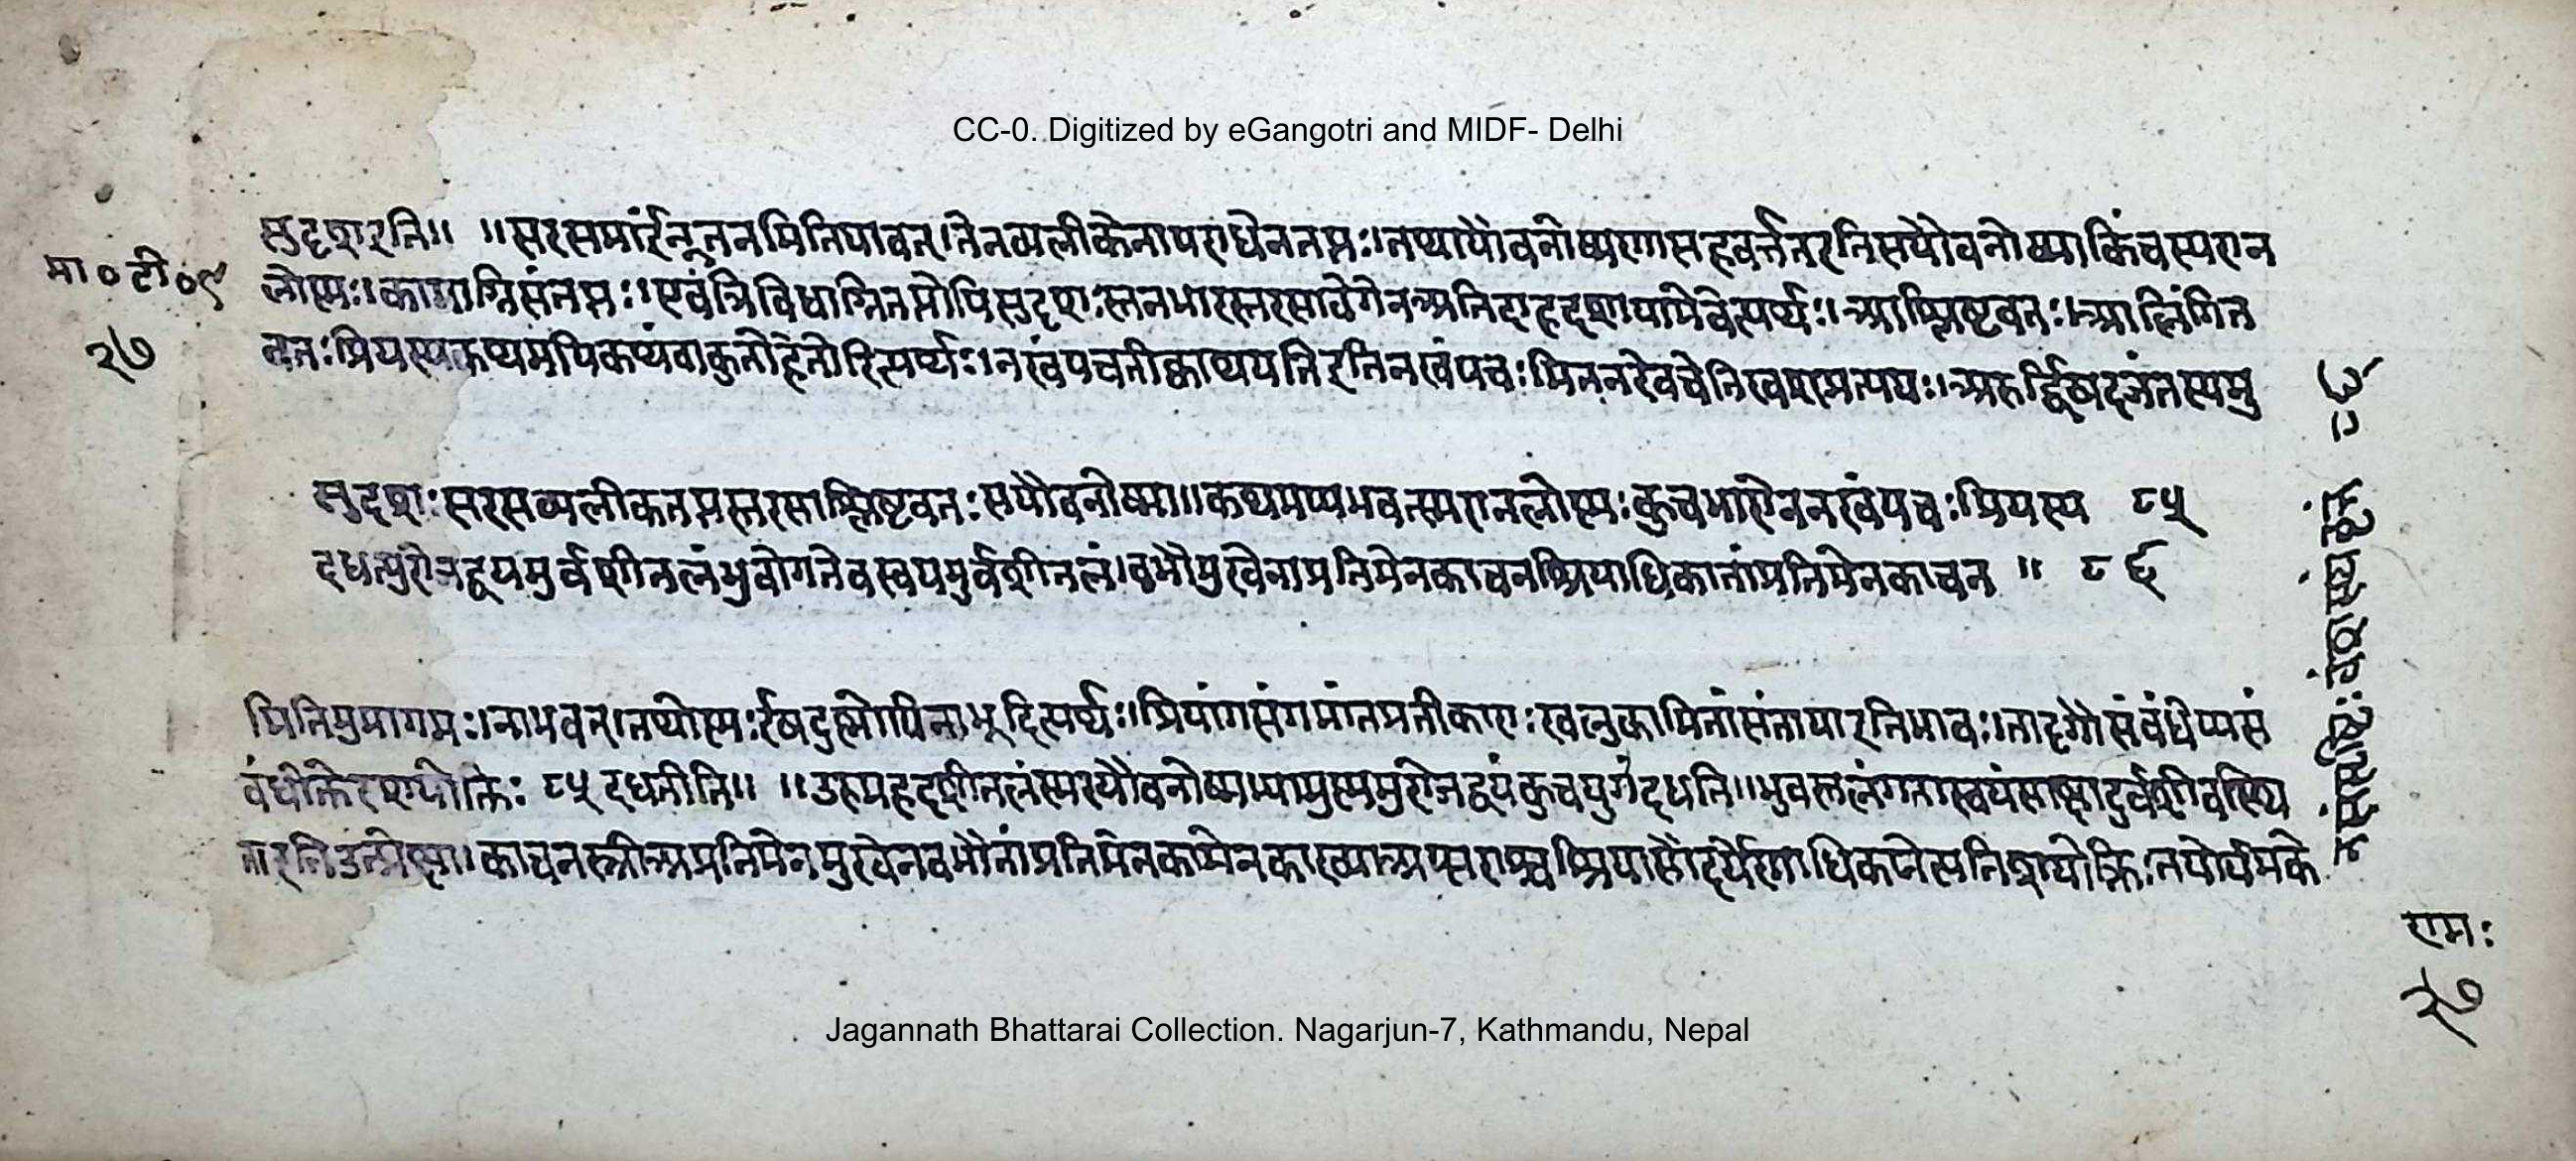 CC-0. Digitized by eGangotri and MIDF- Delhi
सुदृशइति॥ ॥सरसमार्द्रंनूतनमितियावत्।तेनव्यलीकेनापराधेनतप्तः।तथायौवनोष्मणासहवर्त्ततइतिसयौवनोष्मा।किंचस्मरान
मा०टी०९
लोष्मः।कामाग्निसंतप्तः।एवंत्रिविधाग्नितप्तोपिसुदृशःस्तनभारस्तरसावेगेन
आश्लिष्टवतः।आलिंगित
२७
वतःप्रियस्यकथमपिकथंवाकुतोहेतोरित्यर्थः।नखंपचतीक्वाथयतिइतिनखंपचः।मितनखेचेतिखश्प्रत्ययः।अरुर्द्विषदजंतस्यमु
सुदृशःसरसव्यलीकतप्तस्तरसाश्लिष्टवतःसयौवनोष्मा॥कथमप्यभवत्स्मरानलोष्मःकुचभारोननखंपचःप्रियस्य ८५
दधत्युरोजद्वयमुर्वशीतलंभुवोगतेवस्वयमुर्वशीतलं।बभौमुखेनाप्रतिमेनकाचनश्रियाधिकातांप्रतिमेनकाचन ॥ ८६
मितिमुमागमः।नाभवत्।तथोष्मःईषदुष्मोपिनाभूदित्यर्थः।प्रियांगसंगमांतप्रतीकारःखलुकामिनांसंतापइतिभावः।तादृगौसंबंधेप्यसं
बंधोक्तेरतिशयोक्तिः ८५ दधतीति॥ ॥उरुमहदशीतलंस्मरयौवनोष्मभ्यामुष्ममुरोजद्वयंकुचयुगंदधति॥भुवस्तलंगतास्वयंसाक्षादुर्वशीवस्थि
तेइतिउत्प्रेक्षा।काचनस्त्रीअप्रतिमेनमुखेनबभौतांप्रतिमेनकामेनकाख्याअप्सराश्चश्रियासौंदर्येणाधिकानेत्यतिशयोक्तिःतयोर्यमके
राम:
२७
Jagannath Bhattarai Collection. Nagarjun-7, Kathmandu, Nepal